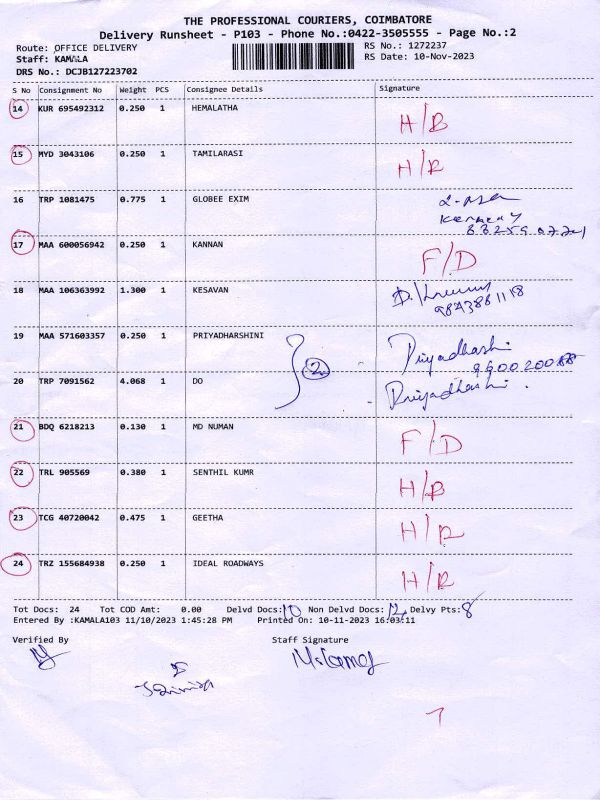 THE PROFESSIONAL COURIERS, COIMBATORE
Delivery Runsheet - P103 - Phone No.:0422-3505555 - Page No.:2
Route: OFFICE DELIVERY RS No.: 1272237
Staff: KAMALA RS Date: 10-Nov-2023
DRS No.: DCJB127223702
S No Consignment No Weight PCS Consignee Details Signature
14 KUR 695492312 0.250 1 HEMALATHA H/B
15 MYD 3043106 0.250 1 TAMILARASI H/R
16 TRP 1081475 0.775 1 GLOBEE EXIM
Kennedy
17 MAA 600056942 0.250 1 KANNAN F/D
18 MAA 106363992 1.300 1 KESAVAN
9843861118
19 MAA 571603357 0.250 1 PRIYADHARSHINI Priyadharshi
2
20 TRP 7091562 4.068 1 DO Priyadharshi.
21 BDQ 6218213 0.130 1 MD NUMAN F/D
22 TRL 905569 0.380 1 SENTHIL KUMR H/B
23 TCG 40720042 0.475 1 GEETHA H/R
24 TRZ 155684938 0.250 1 IDEAL ROADWAYS H/R
Tot Docs: 24 Tot COD Amt: 0.00 Delvd Docs: 10 Non Delvd Docs: 12 Delvy Pts: 8
Entered By :KAMALA103 11/10/2023 1:45:28 PM Printed On: 10-11-2023 16:03:11
Verified By Staff Signature